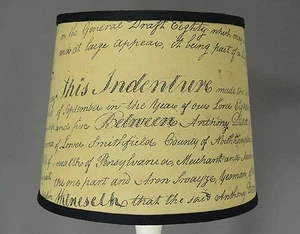 on the General Draft Eighty which
at large Appears, It being part of
This Indenture made the
of September in the Year of our Lord
and five Between Anthony
of Lower Smithfield County of
wealth of Pensylvania Merchant and
the one part and Aron Swayze, Yeoman of
Witnesseth that the said Anthony